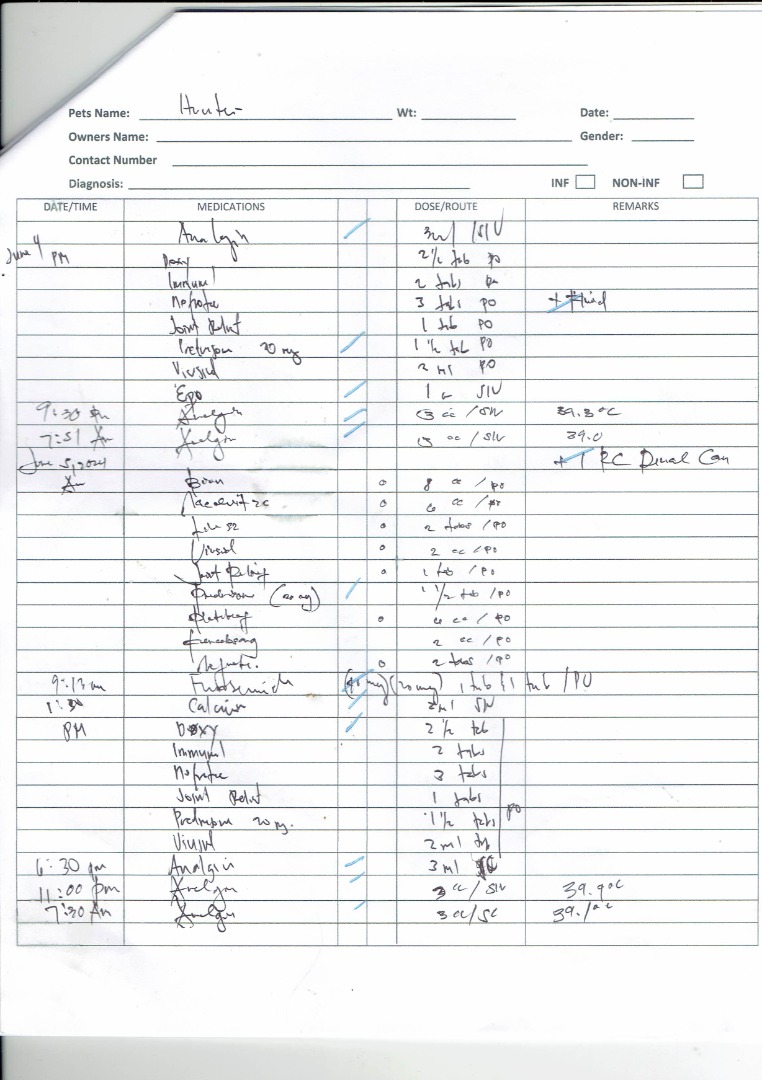 Pets Name: Hunter Wt: Date:
Owners Name: Gender:
Contact Number
Diagnosis: INF NON-INF
DATE/TIME MEDICATIONS DOSE/ROUTE REMARKS
Analgin 3ml /SIV
June 4 PM Doxy 2 1/2 tab po
Immunol 2 tabs po
Nefrotec 3 tabs PO + fluid
Joint Relief 1 tab PO
Prednisone 20 mg 1 1/2 tab PO
Viusid 2 ml PO
Epo 1 SIV
9:30 pm Analgin 3 cc /SIV 39.3°C
7:51 Am Analgin 3 cc /SIV 39.0
June 5, 2024 + 1 RC Renal Can
Am 8 cc /po
cc /po
2 tabs /po
Viusid 2 cc /po
Joint Relief 1 tab /po
Prednisone (20 mg) 1 1/2 tab /po
cc /po
2 cc /po
2 tabs /po
9:13 am Furosemide (40 mg) (20 mg) 1 tab & 1 tab /PO
1:30 Calcium 2ml SIV
PM Doxy 2 1/2 tab
Immunol 2 tabs
Nefrotec 3 tabs
Joint Relief 1 tabs
Prednisone 20 mg. 1 1/2 tabs po
Viusid 2 ml
6:30 pm Analgin 3 ml
11:00 pm Analgin 3 cc/SIV 39.9°C
7:30 Am Analgin 3 cc/SC 39.1°C